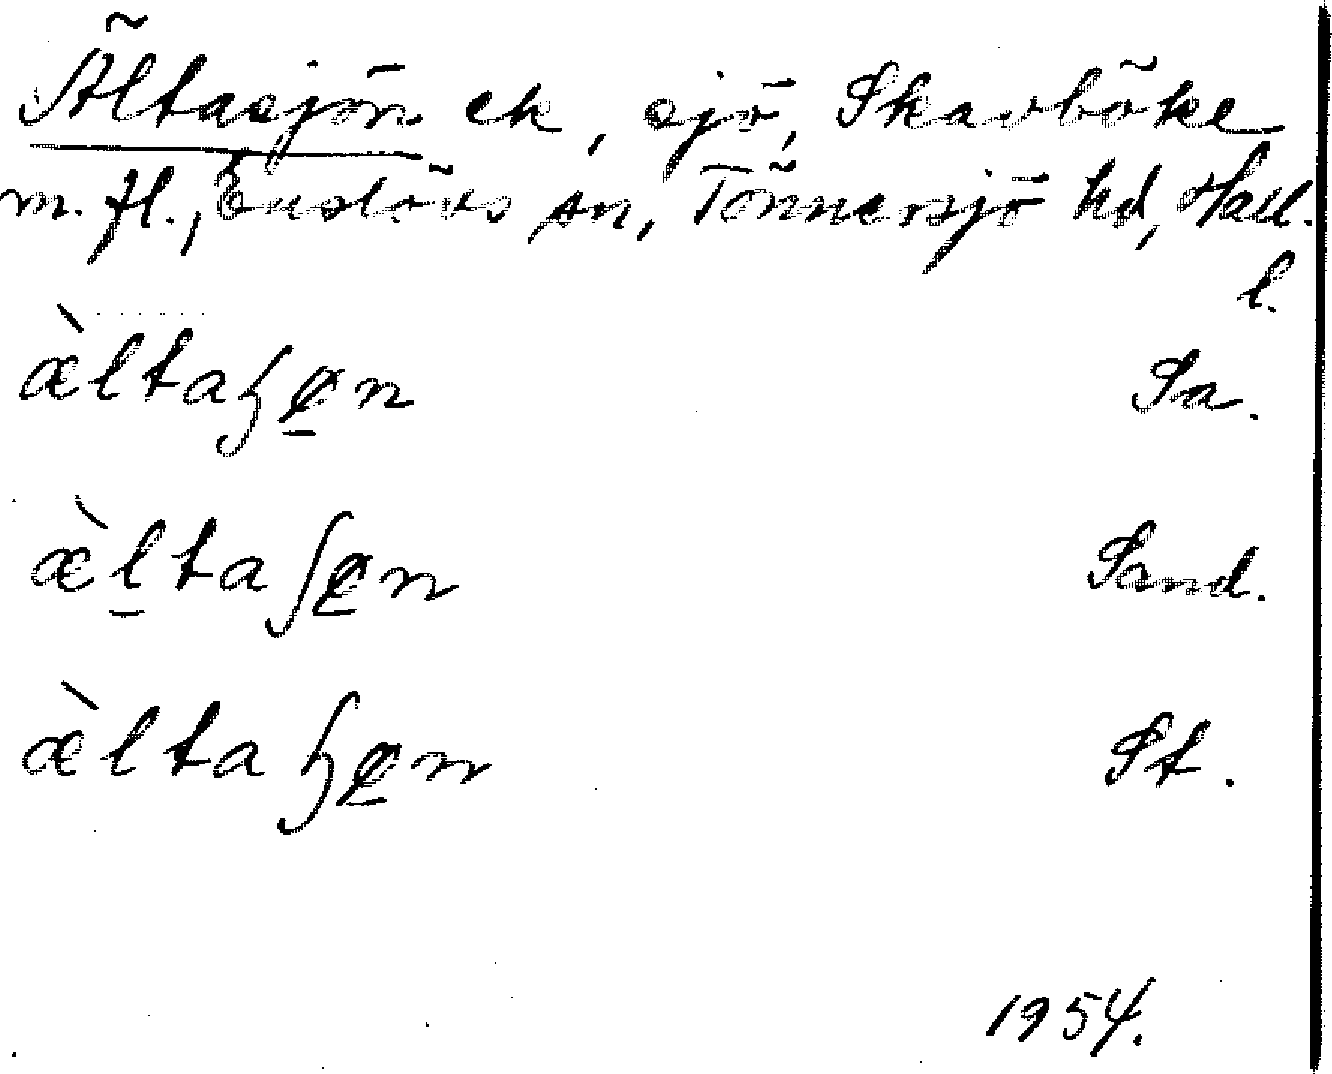 Ältasjön ek, sjö, Skavböke
m. fl., Enslövs sn, Tönnersjö hd, Hall.
l.
æ̀ltaɧø̠n Sa.
æ̀l̠taʃø̠n Sand.
æ̀ltaɧø̠n St.
1954.